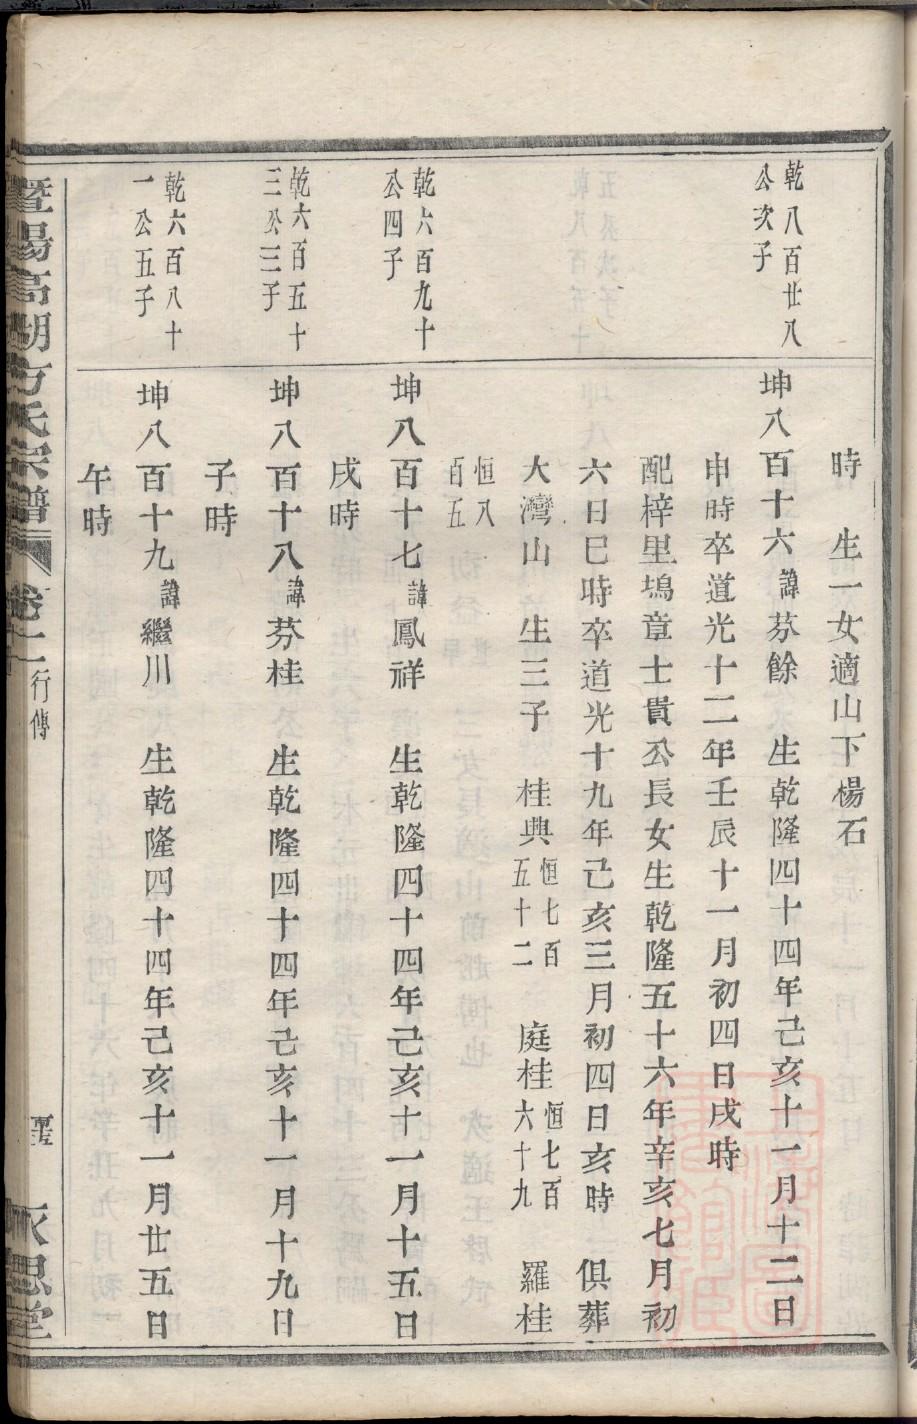 時　生一女適山下楊石
乾八百廿八
公次子
坤八百十六諱芬餘　生乾隆四十四年己亥十一月十二日
申時卒道光十二年壬辰十一月初四日戌時
配梓里塢章士貴公長女生乾隆五十六年辛亥七月初
六日巳時卒道光十九年己亥三月初四日亥時　俱葬
大灣山　生三子　桂興恒七百五十二　庭桂恒七百六十九　羅桂
恒八百五
乾六百九十
公四子
坤八百十七諱鳳祥　生乾隆四十四年己亥十一月十五日
戌時
乾六百五十
三公三子
坤八百十八諱芬桂　生乾隆四十四年己亥十一月十九日
子時
乾六百八十
一公五子
坤八百十九諱繼川　生乾隆四十四年己亥十一月廿五日
午時
暨陽高湖方氏宗譜　行傳　永思堂